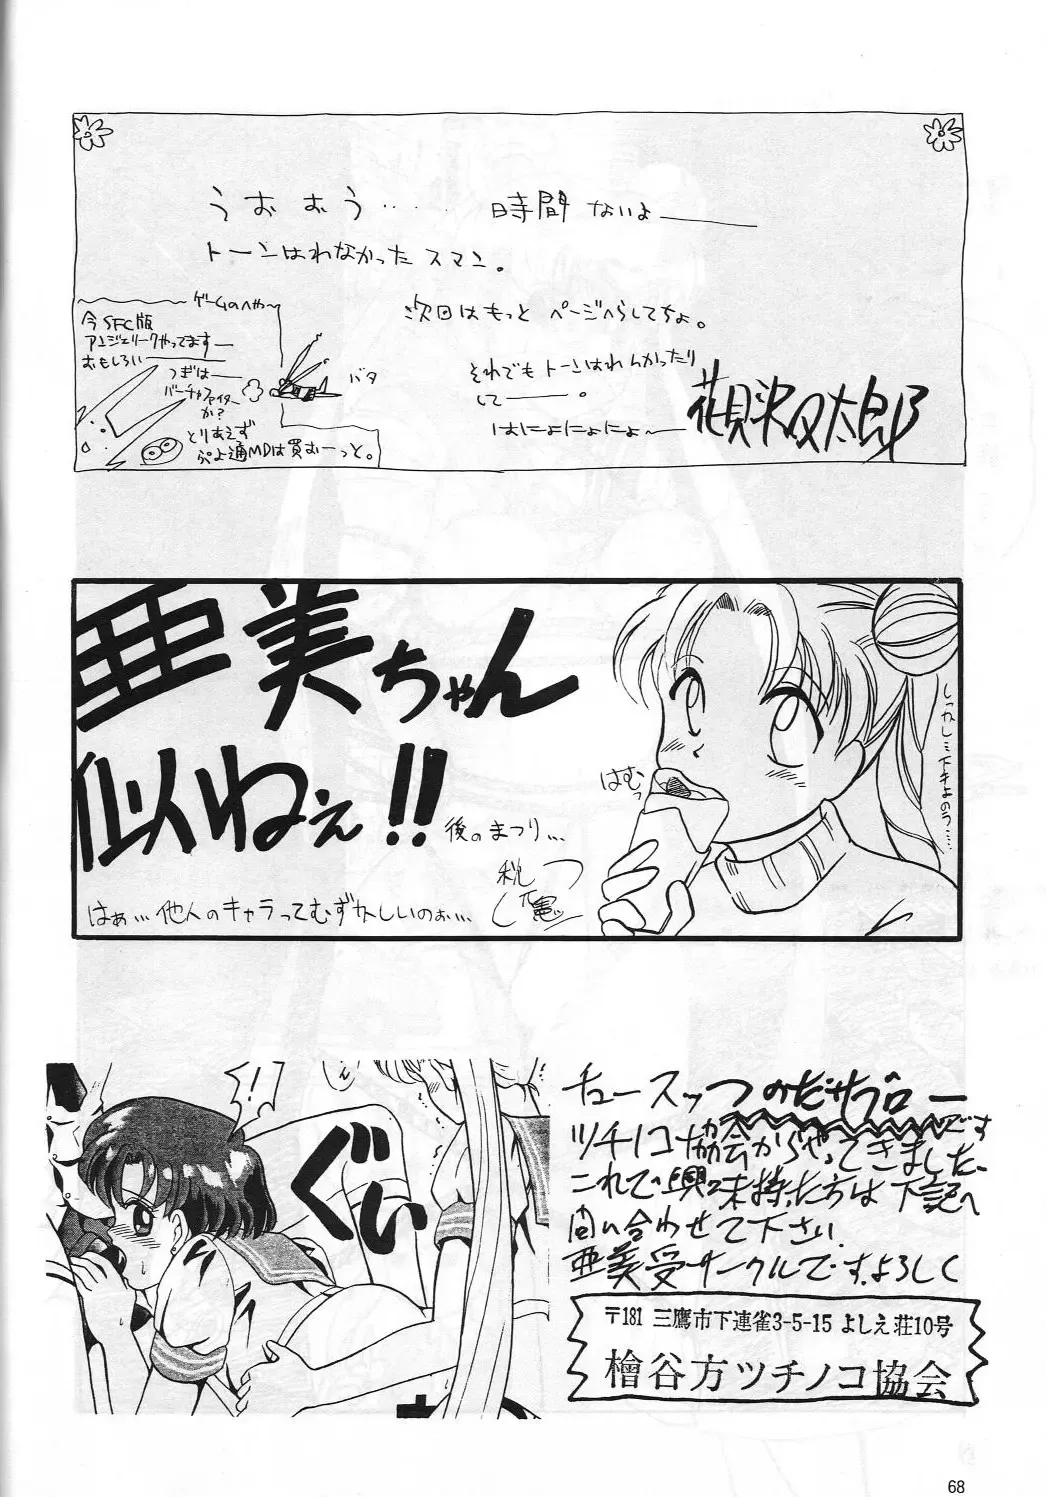 うおおう・・・・ 時間ないよ――
トーンはれなかったスマン。
次回はもっとページへらしてちょ。
それでもトーンはれんかったり
して――。
はにょにょにょ〜
花貝沢又太郎
ゲームのへや〜
今SFC版
アンジェリークやってます―
おもしろい――
つぎは―
バーチャファイター
か?
とりあえず
ぷよ通MDは買おーっと。
バタ
亜美ちゃん
似ねぇ!!
後のまつり…
はぁ… 他人のキャラってむずかしいのぉ…
はむっ
!?
ぐい
チュースッつのだサブロー
です
ツチノコ協会からやってきました、
これで興味持た方は下記へ
問い合わせて下さい
亜美受サークルです、よろしく
〒181 三鷹市下連雀3-5-15 よしえ荘10号
檜谷方ツチノコ協会
68